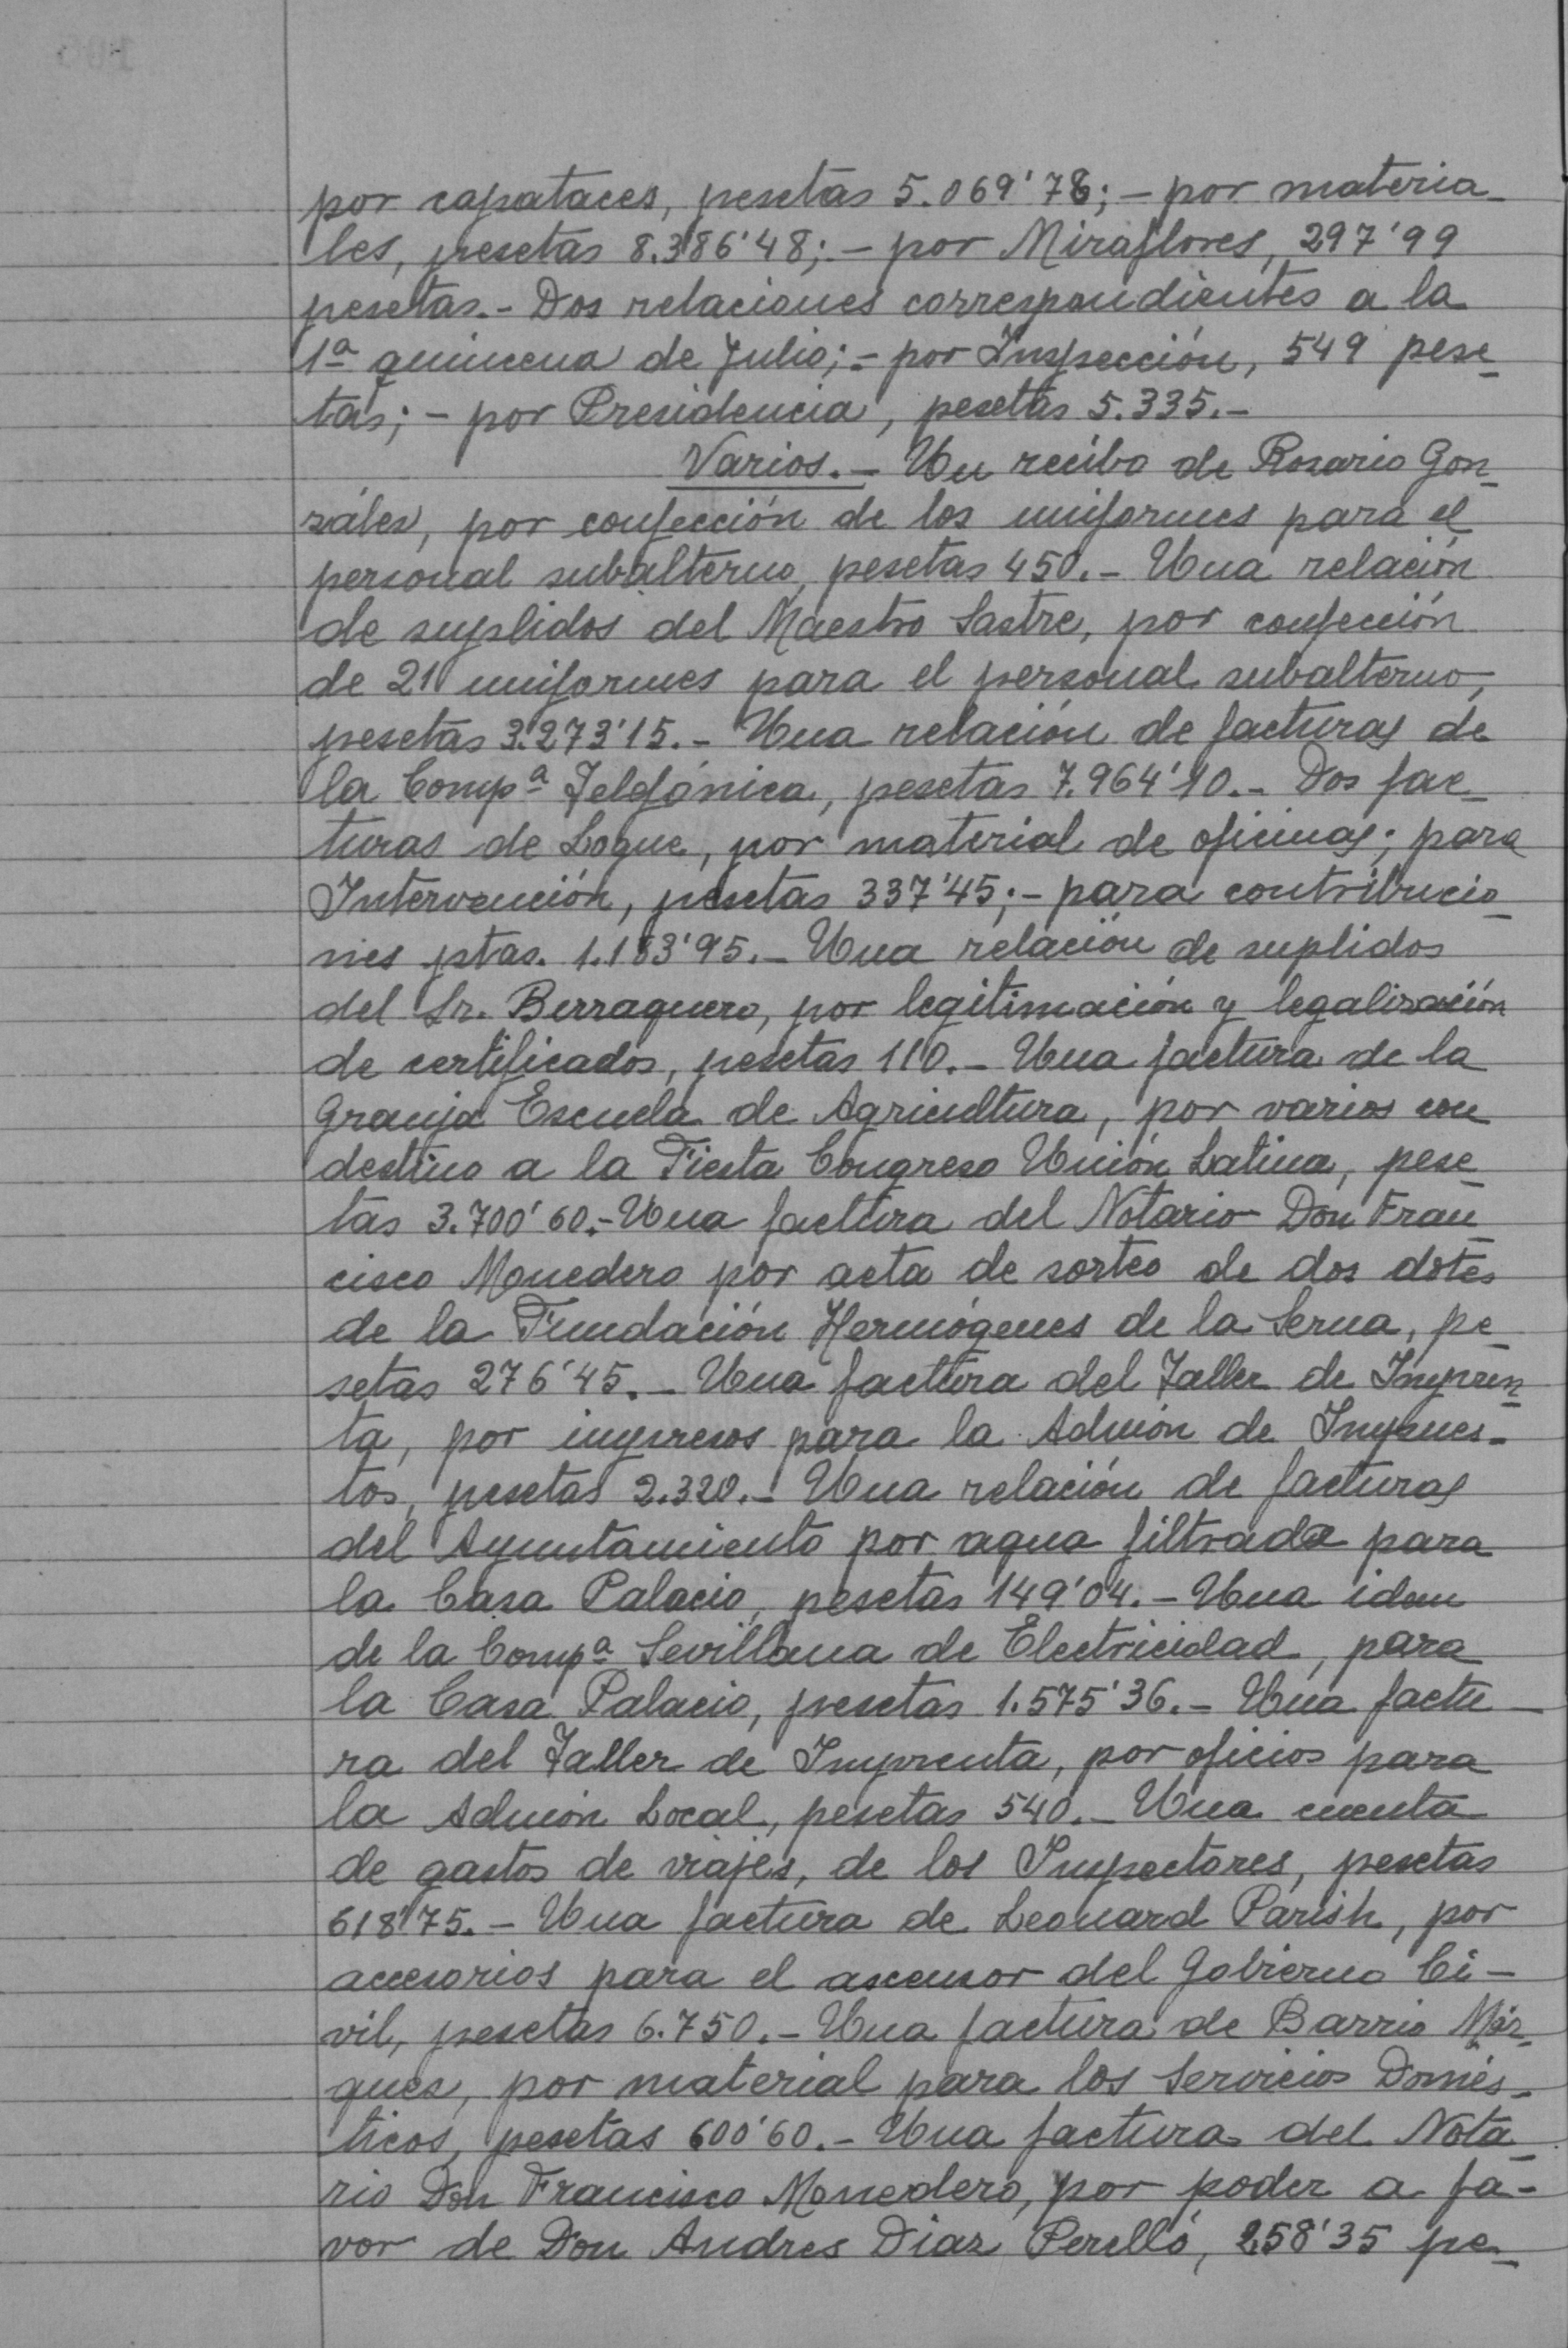 por capataces, pesetas 5.069'78; - por materia-
les, pesetas 8.386'48; - por Miraflores, 297'99
pesetas. - Dos relaciones correspondientes a la
1ª quincena de Julio; - por Inspección, 549 pese-
tas; - por Presidencia, pesetas 5.335. -
Varios. - Un recibo de Rosario Gon-
zález, por confección de los uniformes para el
personal subalterno, pesetas 450. - Una relación
de suplidos del Maestro Sastre, por confección
de 21 uniformes para el personal subalterno,
pesetas 3.273'15. - Una relación de facturas de
la Compª Telefónica, pesetas 7.964'10. - Dos fac-
turas de Logue, por material de oficinas; para
Intervención, pesetas 337'45; - para contribucio-
nes ptas. 1.183'95. - Una relación de suplidos
del Sr. Berraquero, por legitimación y legalización
de certificados, pesetas 110. - Una factura de la
Granja Escuela de Agricultura, por varios con
destino a la Fiesta Congreso Unión Latina, pese-
tas 3.700'60. - Una factura del Notario Don Fran-
cisco Monedero por acta de sorteo de dos dotes
de la Fundación Hermógenes de la Serna, pe-
setas 276'45. - Una factura del Taller de Impren-
ta, por impresos para la Admón de Impues-
tos, pesetas 2.320. - Una relación de facturas
del Ayuntamiento por agua filtrada para
la Casa Palacio, pesetas 149'04. - Una idem
de la Compª Sevillana de Electricidad, para
la Casa Palacio, pesetas 1.575'36. - Una factu-
ra del Taller de Imprenta, por oficios para
la Admón Local, pesetas 540. - Una cuenta
de gastos de viajes, de los Inspectores, pesetas
618'75. - Una factura de Leonard Parish, por
accesorios para el ascensor del Gobierno Ci-
vil, pesetas 6.750. - Una factura de Barrio Már-
quez, por material para los Servicios Domés-
ticos, pesetas 600'60. - Una factura del Nota-
rio Don Francisco Monedero, por poder a fa-
vor de Don Andres Diaz Perelló, 258'35 pe-